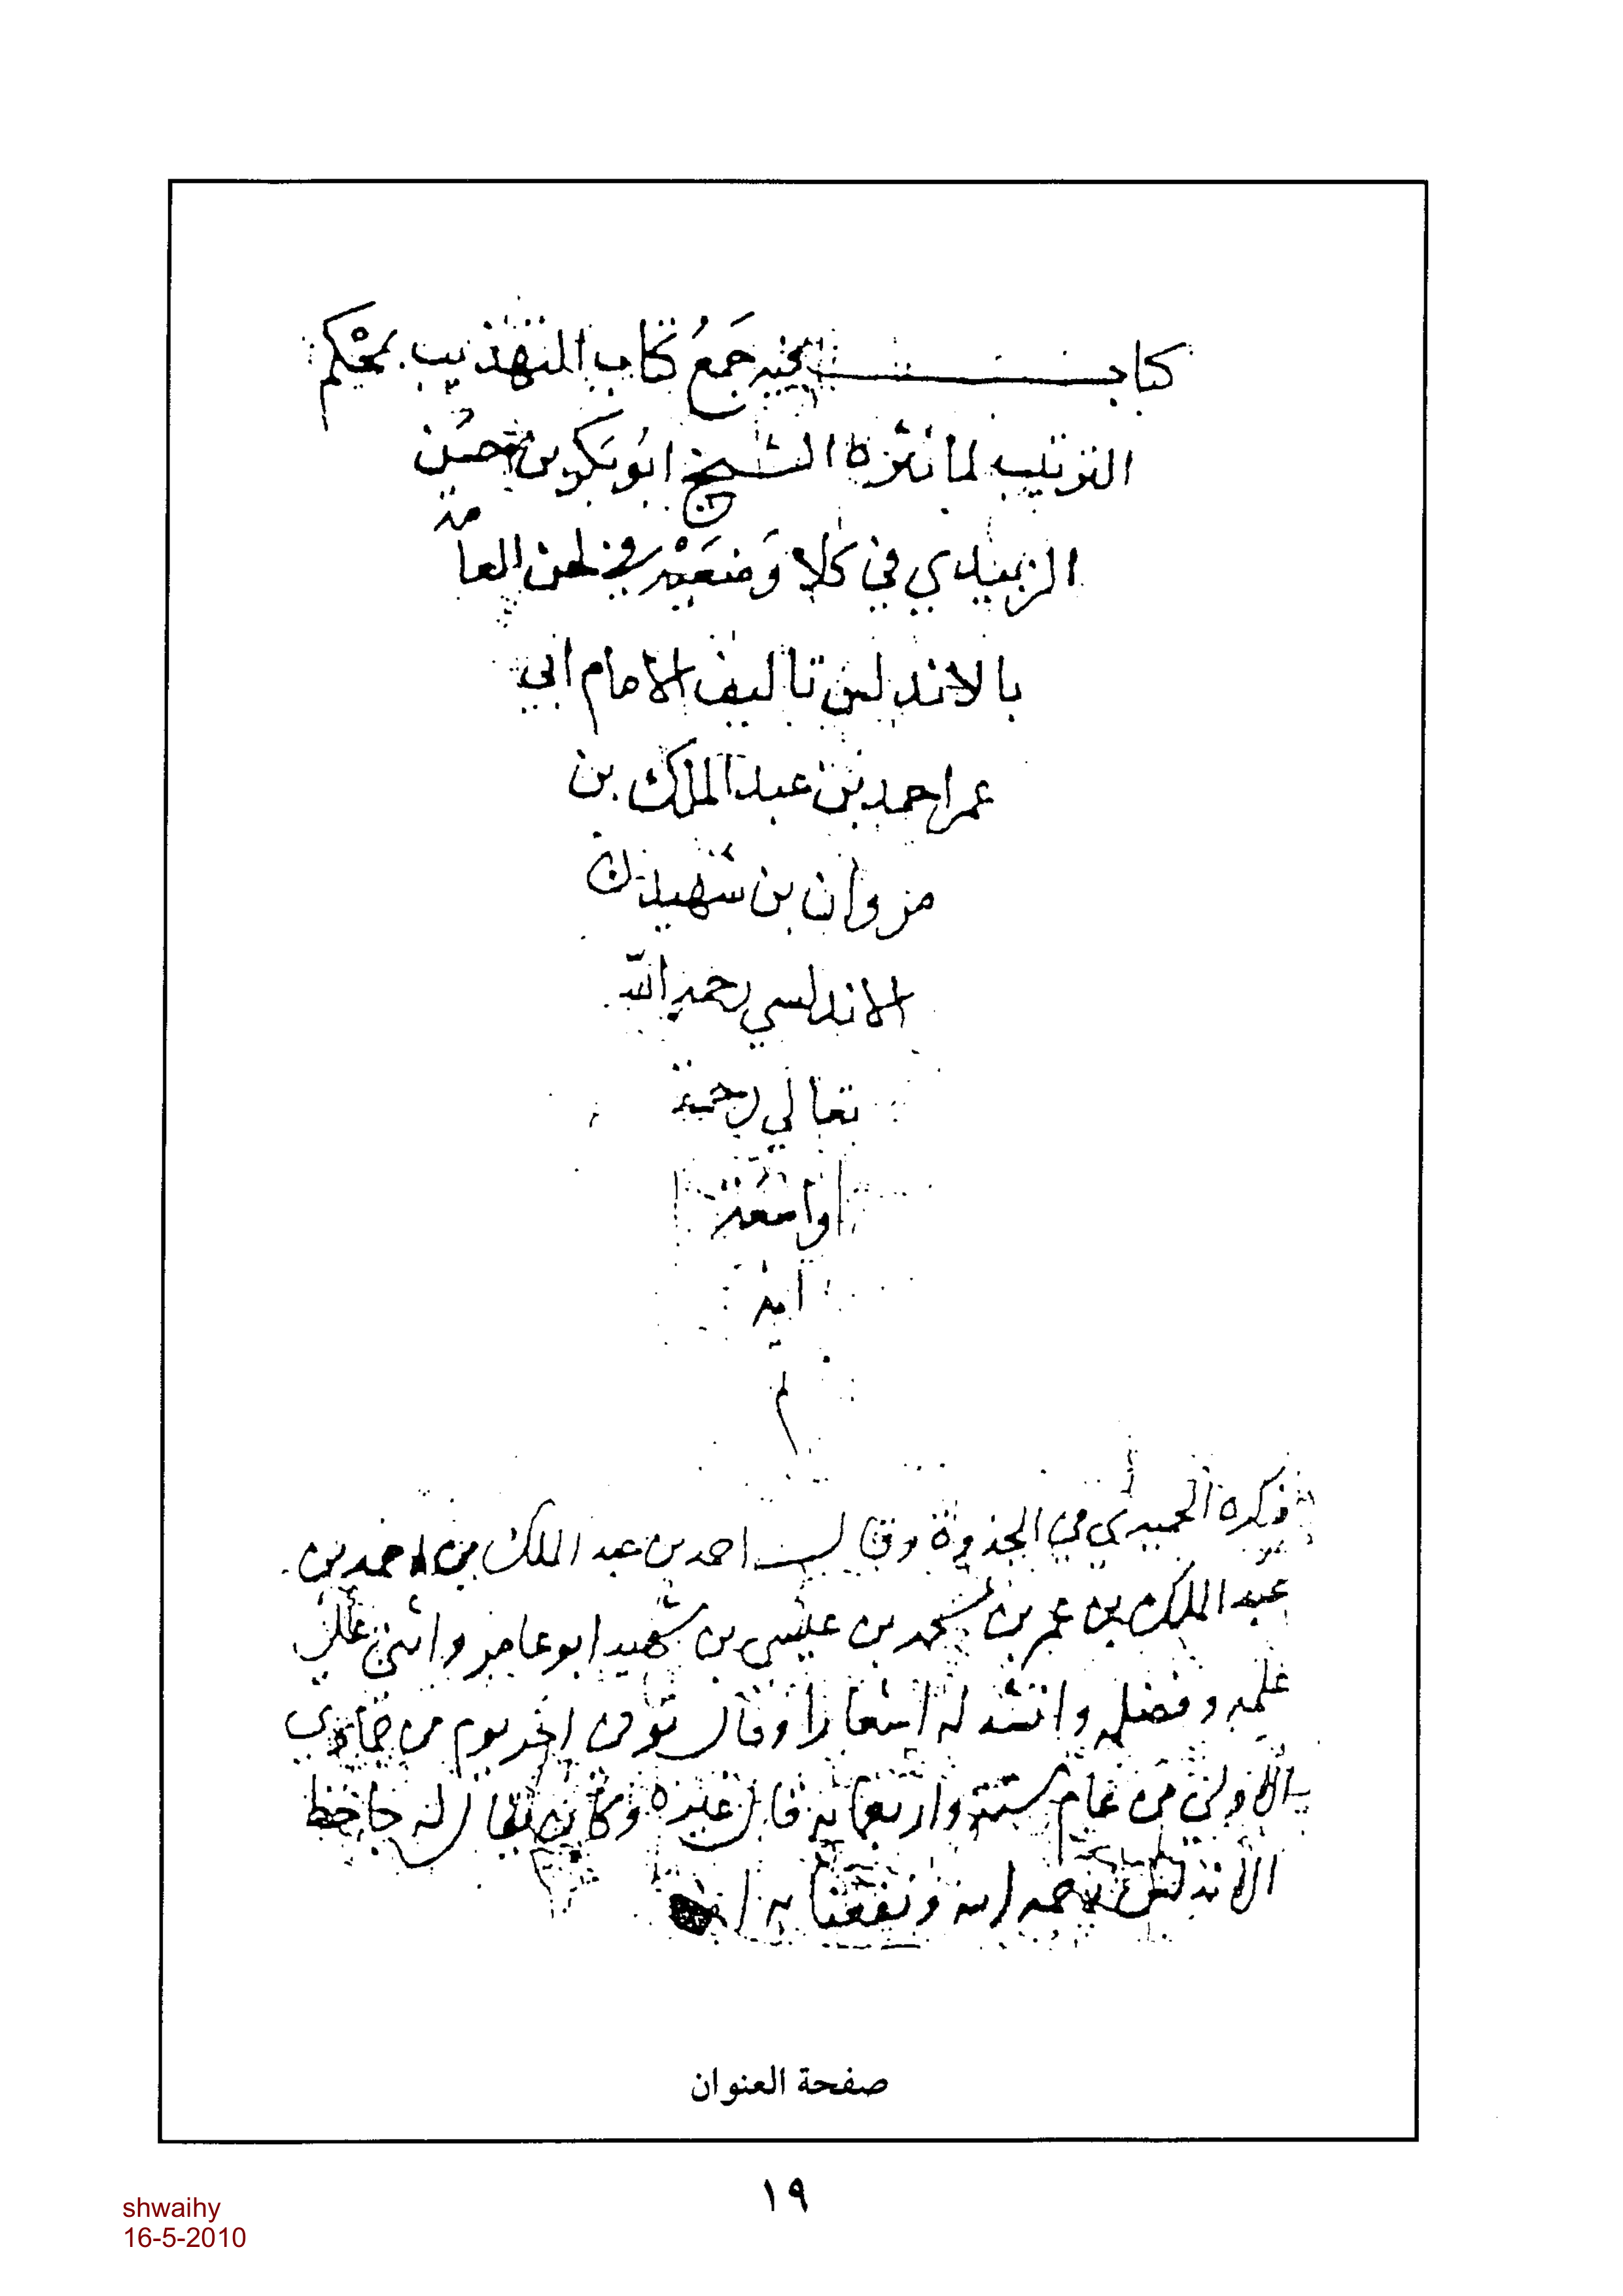 كتاب فيه جَمعُ كتاب التهذيب بمحْكم
الترتيب لما نثره الشيخ ابو بكر بن حسن
الزبيدي في كلا وَضعَيْه في لحن العامة
بالاندلس تاليف الامام ابي
عمر احمد بن عبد الملك بن
مروان بن شهيد
الاندلسي رحمه الله
تعالي رحمة
واسعة
امين
ذكره الحميدي في الجذوة وقال احمد بن عبد الملك بن احمد بن
عبد الملك بن عمر بن محمد بن عيسى بن شهيد ابو عامر واثنى على
علمه وفضله وانشد له اشعارا وقال توفى اخر يوم من جمادى
الاولى من عام ستة واربعماية قال غيره وكان يقال له جاحظ
الاندلس رحمه الله ونفعنا به
صفحة العنوان
١٩
shwaihy
16-5-2010